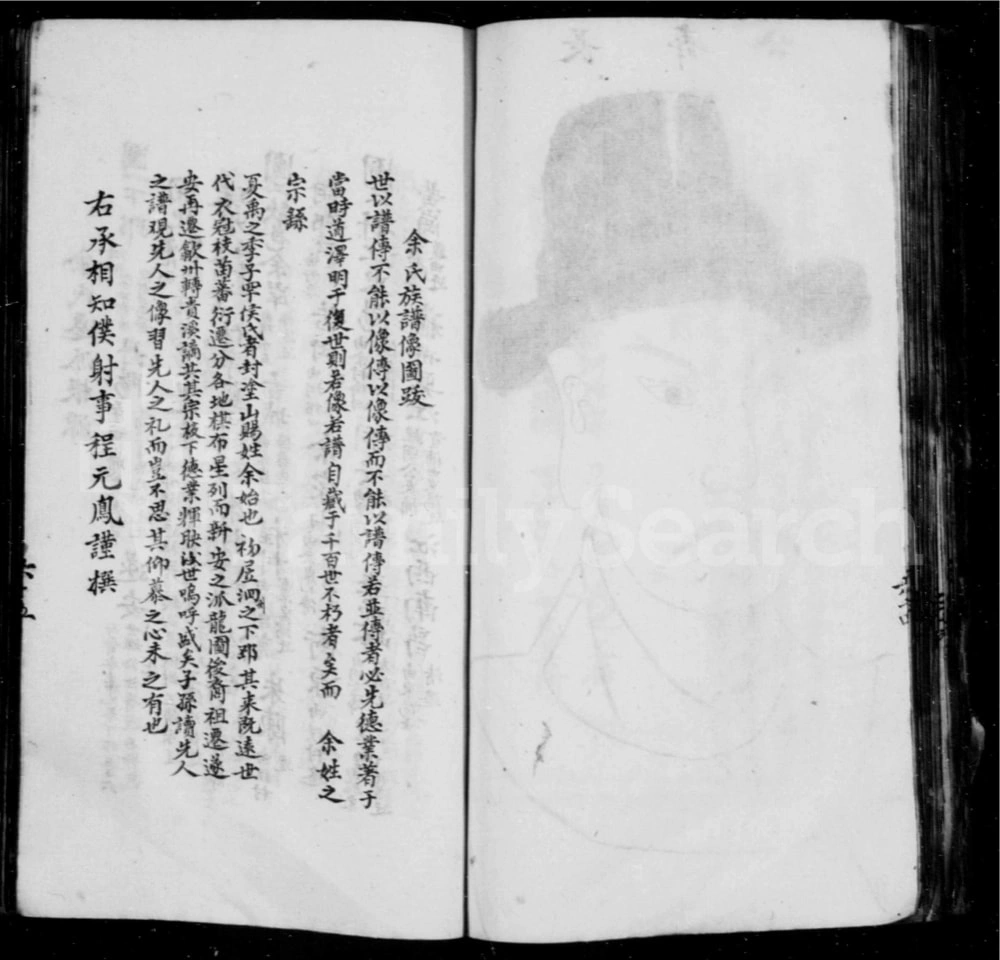 余氏族譜像圖跋
世以譜傳不能以像傳以像傳而不能以譜傳若並傳者必先德業著于
當時道澤明于後世則若像若譜自藏于千百世不朽者矣而 余姓之
宗繇
夏禹之季子罕侯氏者封塗山賜姓余始也 初居泗之下邳其来既遠世
代衣冠枝苗蕃衍遷分各地棋布星列而新安之派龍圖後裔祖遷遂
安再遷歙州轉貴溪謫共其宗枝下德業輝耿 世嗚呼盛矣子孫讀先人
之譜观先人之像習先人之礼而豈不思其仰慕之心未之有也
右承相知僕射事程元鳳謹撰
FamilySearch